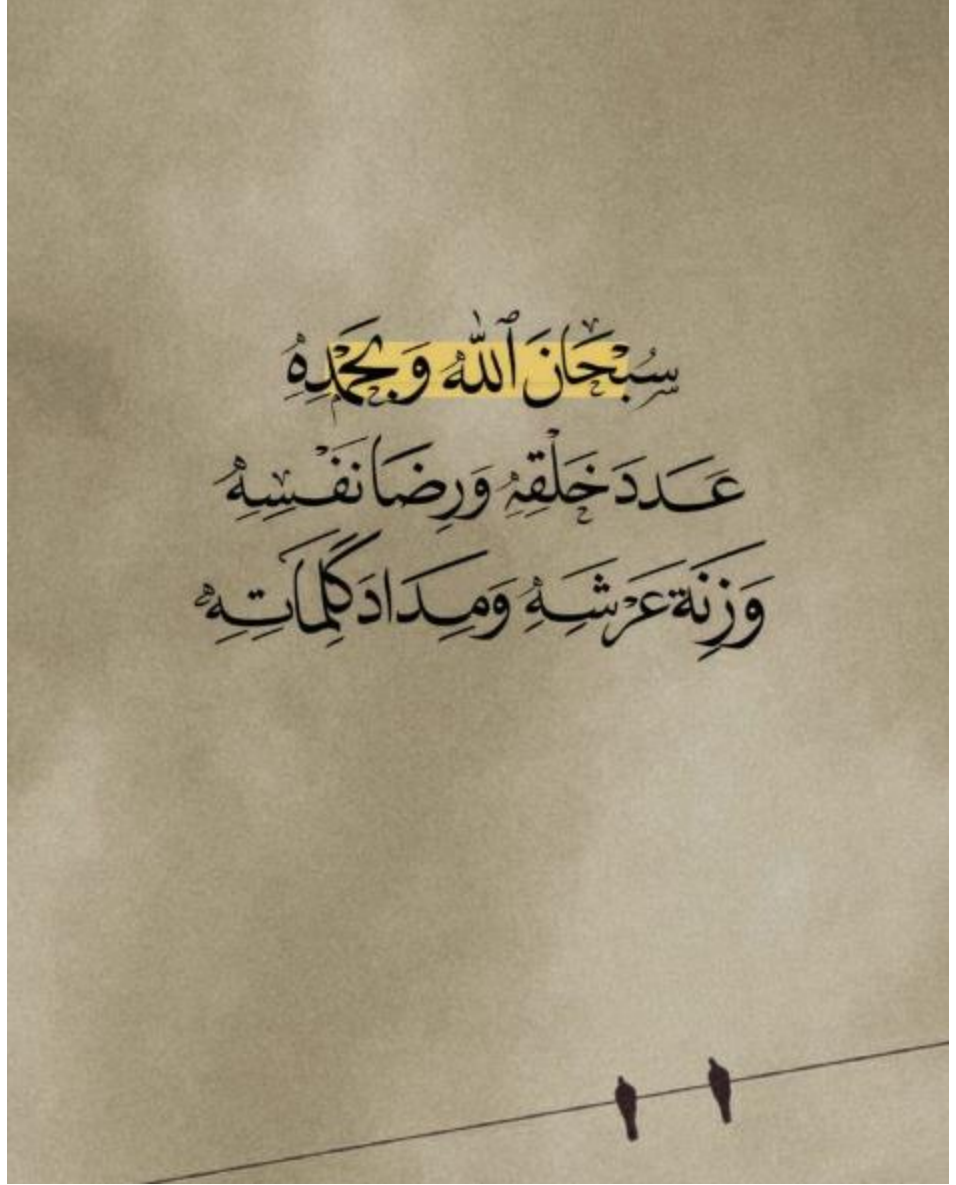 سُبْحَانَ ٱللّٰهِ وَبِحَمْدِهِ
عَدَدَ خَلْقِهِ وَرِضَا نَفْسِهِ
وَزِنَةَ عَرْشِهِ وَمِدَادَ كَلِمَاتِهِ